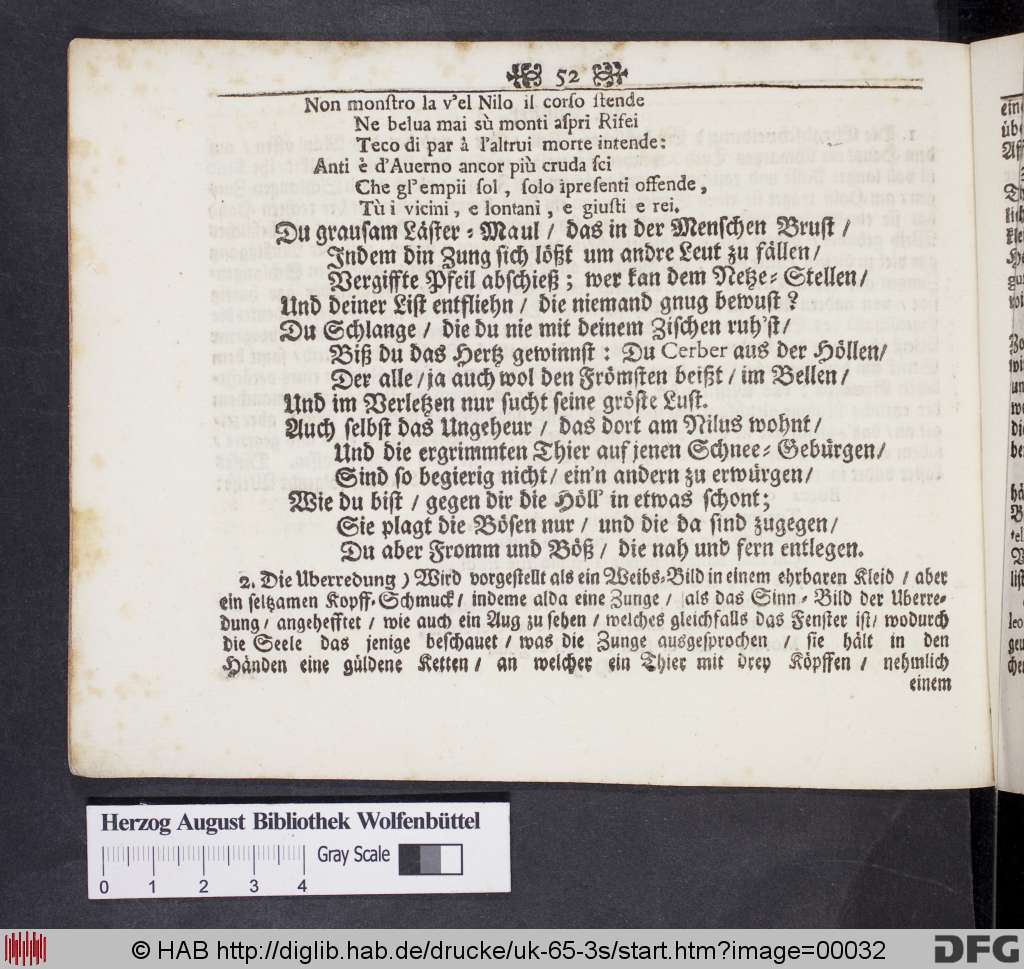 52
Non monſtro la v'el Nilo il corſo ſtende
Ne belua mai sù monti aſpri Rifei
Teco di par à l'altrui morte intende:
Anti è d'Auerno ancor più cruda ſci
Che gl'empii ſol, ſolo ipreſenti offende,
Tù i vicini, e lontani, e giuſti e rei.
Du grauſam Läſter-Maul / das in der Menſchen Bruſt /
Indem din Zung ſich lößt um andre Leut zu fällen /
Vergiffte Pfeil abſchieß; wer kan dem Netze-Stellen /
Und deiner Liſt entfliehn / die niemand gnug bewuſt?
Du Schlange / die du nie mit deinem Ziſchen ruh'ſt /
Biß du das Hertz gewinnſt: Du Cerber aus der Höllen /
Der alle / ja auch wol den Frömſten beißt / im Bellen /
Und im Verletzen nur ſucht ſeine gröſte Luſt.
Auch ſelbſt das Ungeheur / das dort am Nilus wohnt /
Und die ergrimmten Thier auf jenen Schnee-Gebürgen /
Sind ſo begierig nicht / ein'n andern zu erwürgen /
Wie du biſt / gegen dir die Höll' in etwas ſchont;
Sie plagt die Böſen nur / und die da ſind zugegen /
Du aber Fromm und Böß / die nah und fern entlegen.
2. Die Uberredung) Wird vorgeſtellt als ein Weibs-Bild in einem ehrbaren Kleid / aber
ein ſeltzamen Kopff-Schmuck / indeme alda eine Zunge / als das Sinn-Bild der Uberre-
dung / angehefftet / wie auch ein Aug zu ſehen / welches gleichfalls das Fenſter iſt / wodurch
die Seele das jenige beſchauet / was die Zunge ausgeſprochen / ſie hält in den
Händen eine güldene Ketten / an welcher ein Thier mit drey Köpffen / nehmlich
einem
Herzog August Bibliothek Wolfenbüttel
Gray Scale
0 1 2 3 4
© HAB http://diglib.hab.de/drucke/uk-65-3s/start.htm?image=00032
DFG